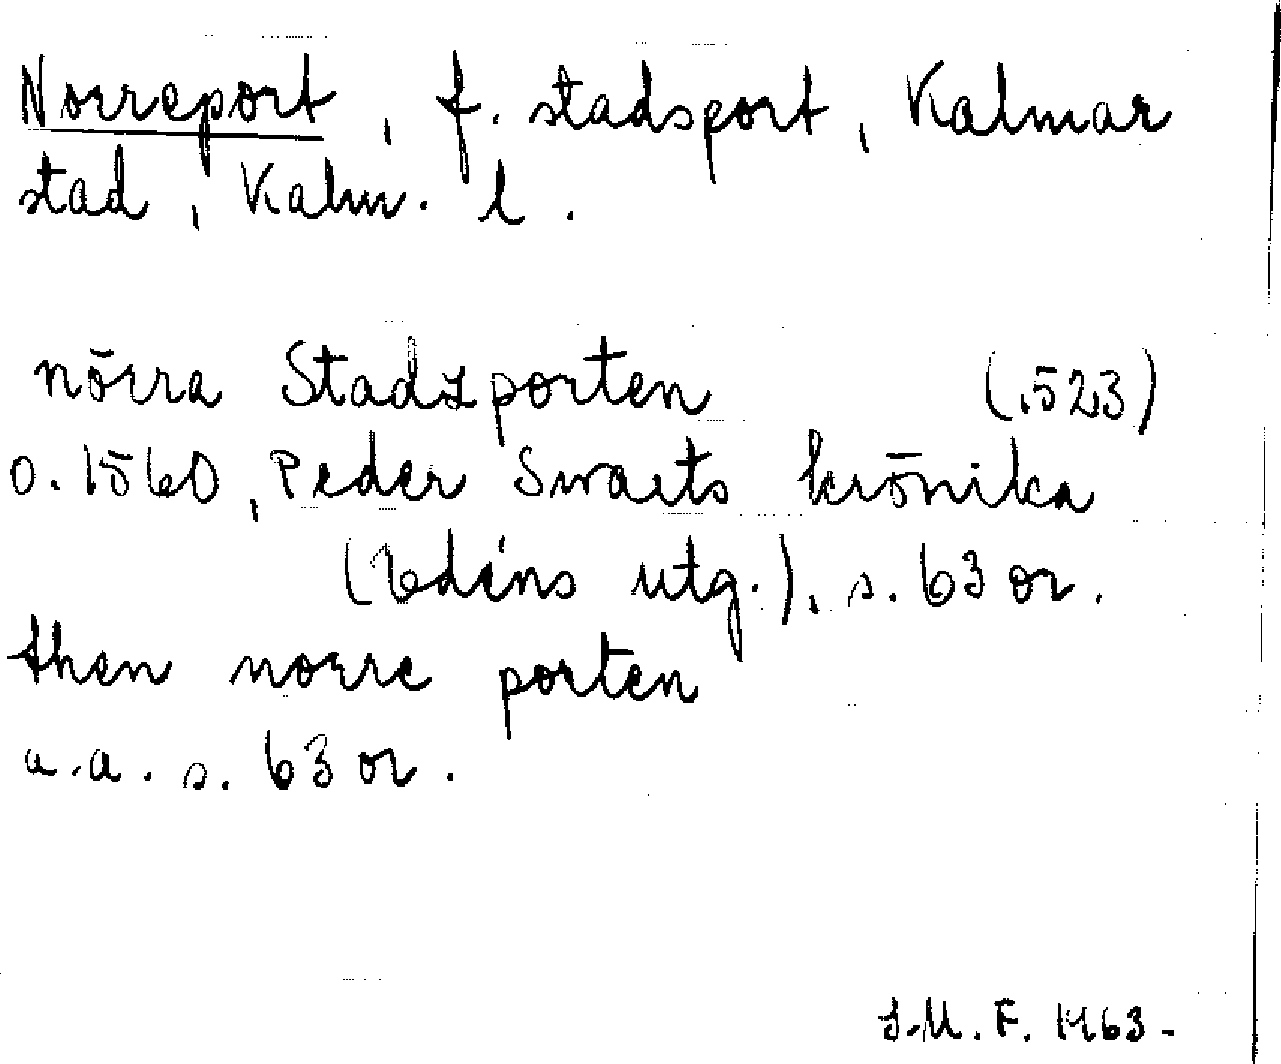 Norreport, f. stadsport, Kalmar
stad, Kalm. l.
nörra Stadzporten (1523)
o. 1560, Peder Swarts krönika
(Edéns utg.), s. 63 or.
then norre porten
a.a. s. 63 or.
I.M.F. 1963.